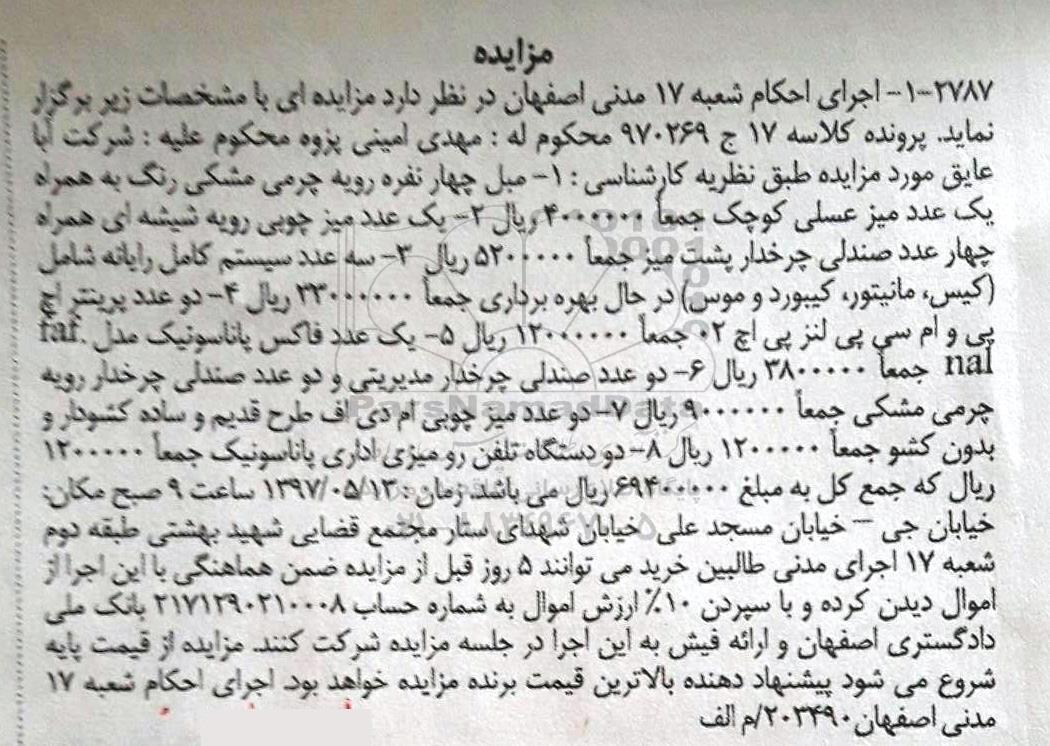 مزایده
۱-۲۷۸۷- اجرای احکام شعبه ۱۷ مدنی اصفهان در نظر دارد مزایده ای با مشخصات زیر برگزار
نماید. پرونده کلاسه ۱۷ ج ۹۷۰۲۶۹ محکوم له : مهدی امینی پزوه محکوم علیه : شرکت آبا
عایق مورد مزایده طبق نظریه کارشناسی : ۱- مبل چهار نفره رویه چرمی مشکی رنگ به همراه
یک عدد میز عسلی کوچک جمعاً ۴۰۰۰۰۰۰ ریال ۲- یک عدد میز چوبی رویه شیشه ای همراه
چهار عدد صندلی چرخدار پشت میز جمعاً ۵۲۰۰۰۰۰ ریال ۳- سه عدد سیستم کامل رایانه شامل
(کیس، مانیتور، کیبورد و موس) در حال بهره برداری جمعاً ۳۳۰۰۰۰۰۰ ریال ۴- دو عدد پرینتر اچ
پی و ام سی پی لنز پی اچ ۰۲ جمعاً ۱۲۰۰۰۰۰۰ ریال ۵- یک عدد فاکس پاناسونیک مدل .faf
nal جمعاً ۳۸۰۰۰۰۰ ریال ۶- دو عدد صندلی چرخدار مدیریتی و دو عدد صندلی چرخدار رویه
چرمی مشکی جمعاً ۹۰۰۰۰۰۰ ریال ۷- دو عدد میز چوبی ام دی اف طرح قدیم و ساده کشودار و
بدون کشو جمعاً ۱۲۰۰۰۰۰ ریال ۸- دو دستگاه تلفن رو میزی اداری پاناسونیک جمعاً ۱۲۰۰۰۰۰
ریال که جمع کل به مبلغ ۶۹۴۰۰۰۰۰ ریال می باشد. زمان : ۱۳۹۷/۰۵/۱۳ ساعت ۹ صبح مکان:
خیابان جی – خیابان مسجد علی خیابان شهدای ستار مجتمع قضایی شهید بهشتی طبقه دوم
شعبه ۱۷ اجرای مدنی طالبین خرید می توانند ۵ روز قبل از مزایده ضمن هماهنگی با این اجرا از
اموال دیدن کرده و با سپردن ۱۰٪ ارزش اموال به شماره حساب ۲۱۷۱۲۹۰۲۱۰۰۰۸ بانک ملی
دادگستری اصفهان و ارائه فیش به این اجرا در جلسه مزایده شرکت کنند. مزایده از قیمت پایه
شروع می شود پیشنهاد دهنده بالاترین قیمت برنده مزایده خواهد بود. اجرای احکام شعبه ۱۷
مدنی اصفهان ۲۰۳۴۹۰/م الف
ParsNamadData